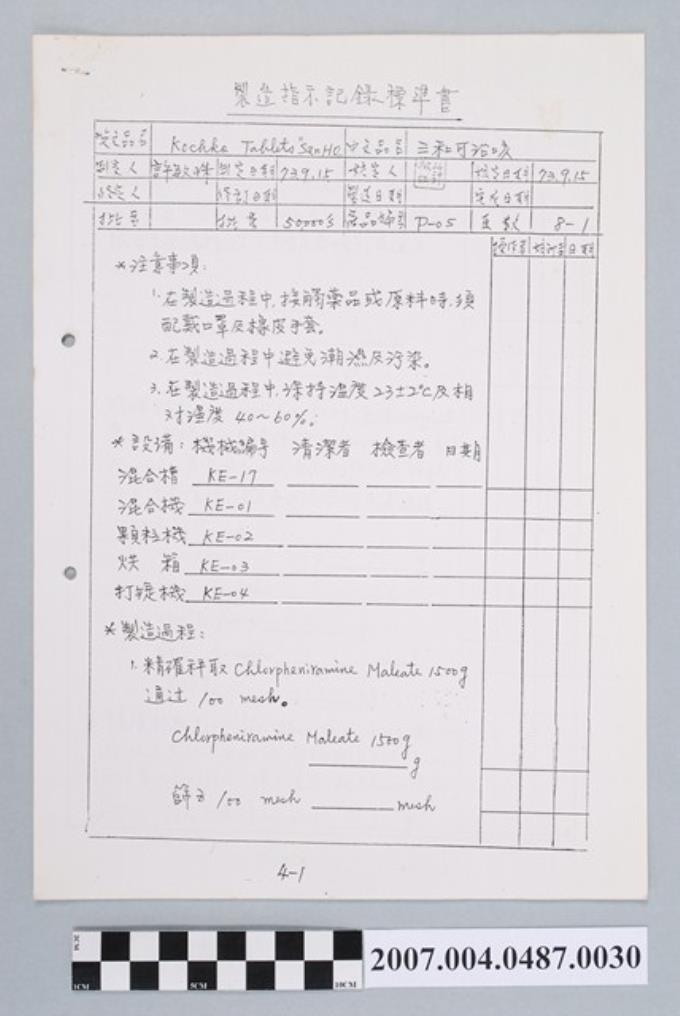 製造指示記錄標準書
英文品名 Kochke Tablets "SanHO 中文品名 三和可治咳
制定人 許敏珠 制定日期 73.9.15 核定人 核定日期 73.9.15
修定人 修訂日期 製造日期 完成日期
批号 批量 50000錠 產品編号 P-05 頁數 8-1
操作者 核對者 日期
*注意事項:
1. 在製造過程中,接觸藥品或原料時,須
配戴口罩及橡皮手套。
2. 在製造過程中避免潮濕及污染。
3. 在製造過程中,保持溫度23±2°C及相
对溼度 40~60%.
*設備: 機械編号 清潔者 檢查者 日期
混合槽 KE-17
混合機 KE-01
顆粒機 KE-02
烘 箱 KE-03
打錠機 KE-04
*製造過程:
1. 精確秤取 Chlorpheniramine Maleate 1500g
通过 100 mesh。
Chlorpheniramine Maleate 1500g
g
篩号 100 mesh mesh
4-1
1CM 5CM 10CM
2007.004.0487.0030